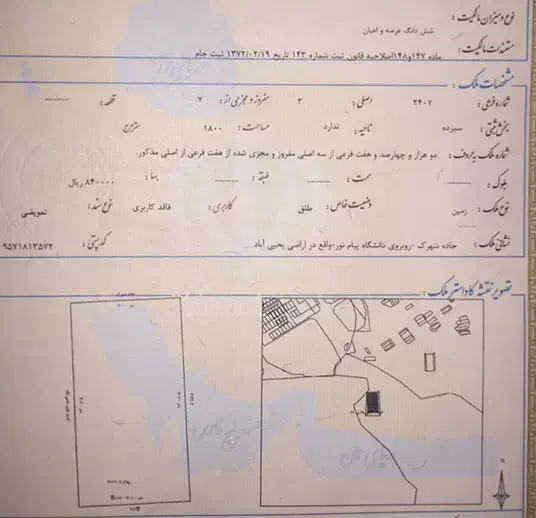 نوع و میزان مالکیت : شش دانگ عرصه و اعیان
مستندات مالکیت : ماده ۱۴۷و۱۴۸اصلاحیه قانون ثبت شماره ۱۴۳ تاریخ ۱۳۷۲/۰۲/۱۹ ثبت جام
مشخصات ملک :
شماره فرعی : ۲۴۰۷ اصلی : ۳ مفروز و مجزی از : ۷ قطعه :
بخش ثبتی : سیزده ناحیه : ندارد مساحت : ۱۸۰۰ مترمربع
شماره ملک بحروف : دو هزار و چهارصد و هفت فرعی از سه اصلی مفروز و مجزی شده از هفت فرعی از اصلی مذکور.
بلوک : سمت : طبقه : بها : ۸۴۰۰۰۰ ریال
نوع ملک : زمین وضعیت خاص : طلق کاربری : فاقد کاربری نوع سند : تعویضی
نشانی ملک : جاده شهرک -روبروی دانشگاه پیام نور-واقع در اراضی یحیی آباد کد پستی : ۹۵۷۱۸۱۳۵۷۲
تصویر نقشه کاداستر ملک :
خلیج فارس
N